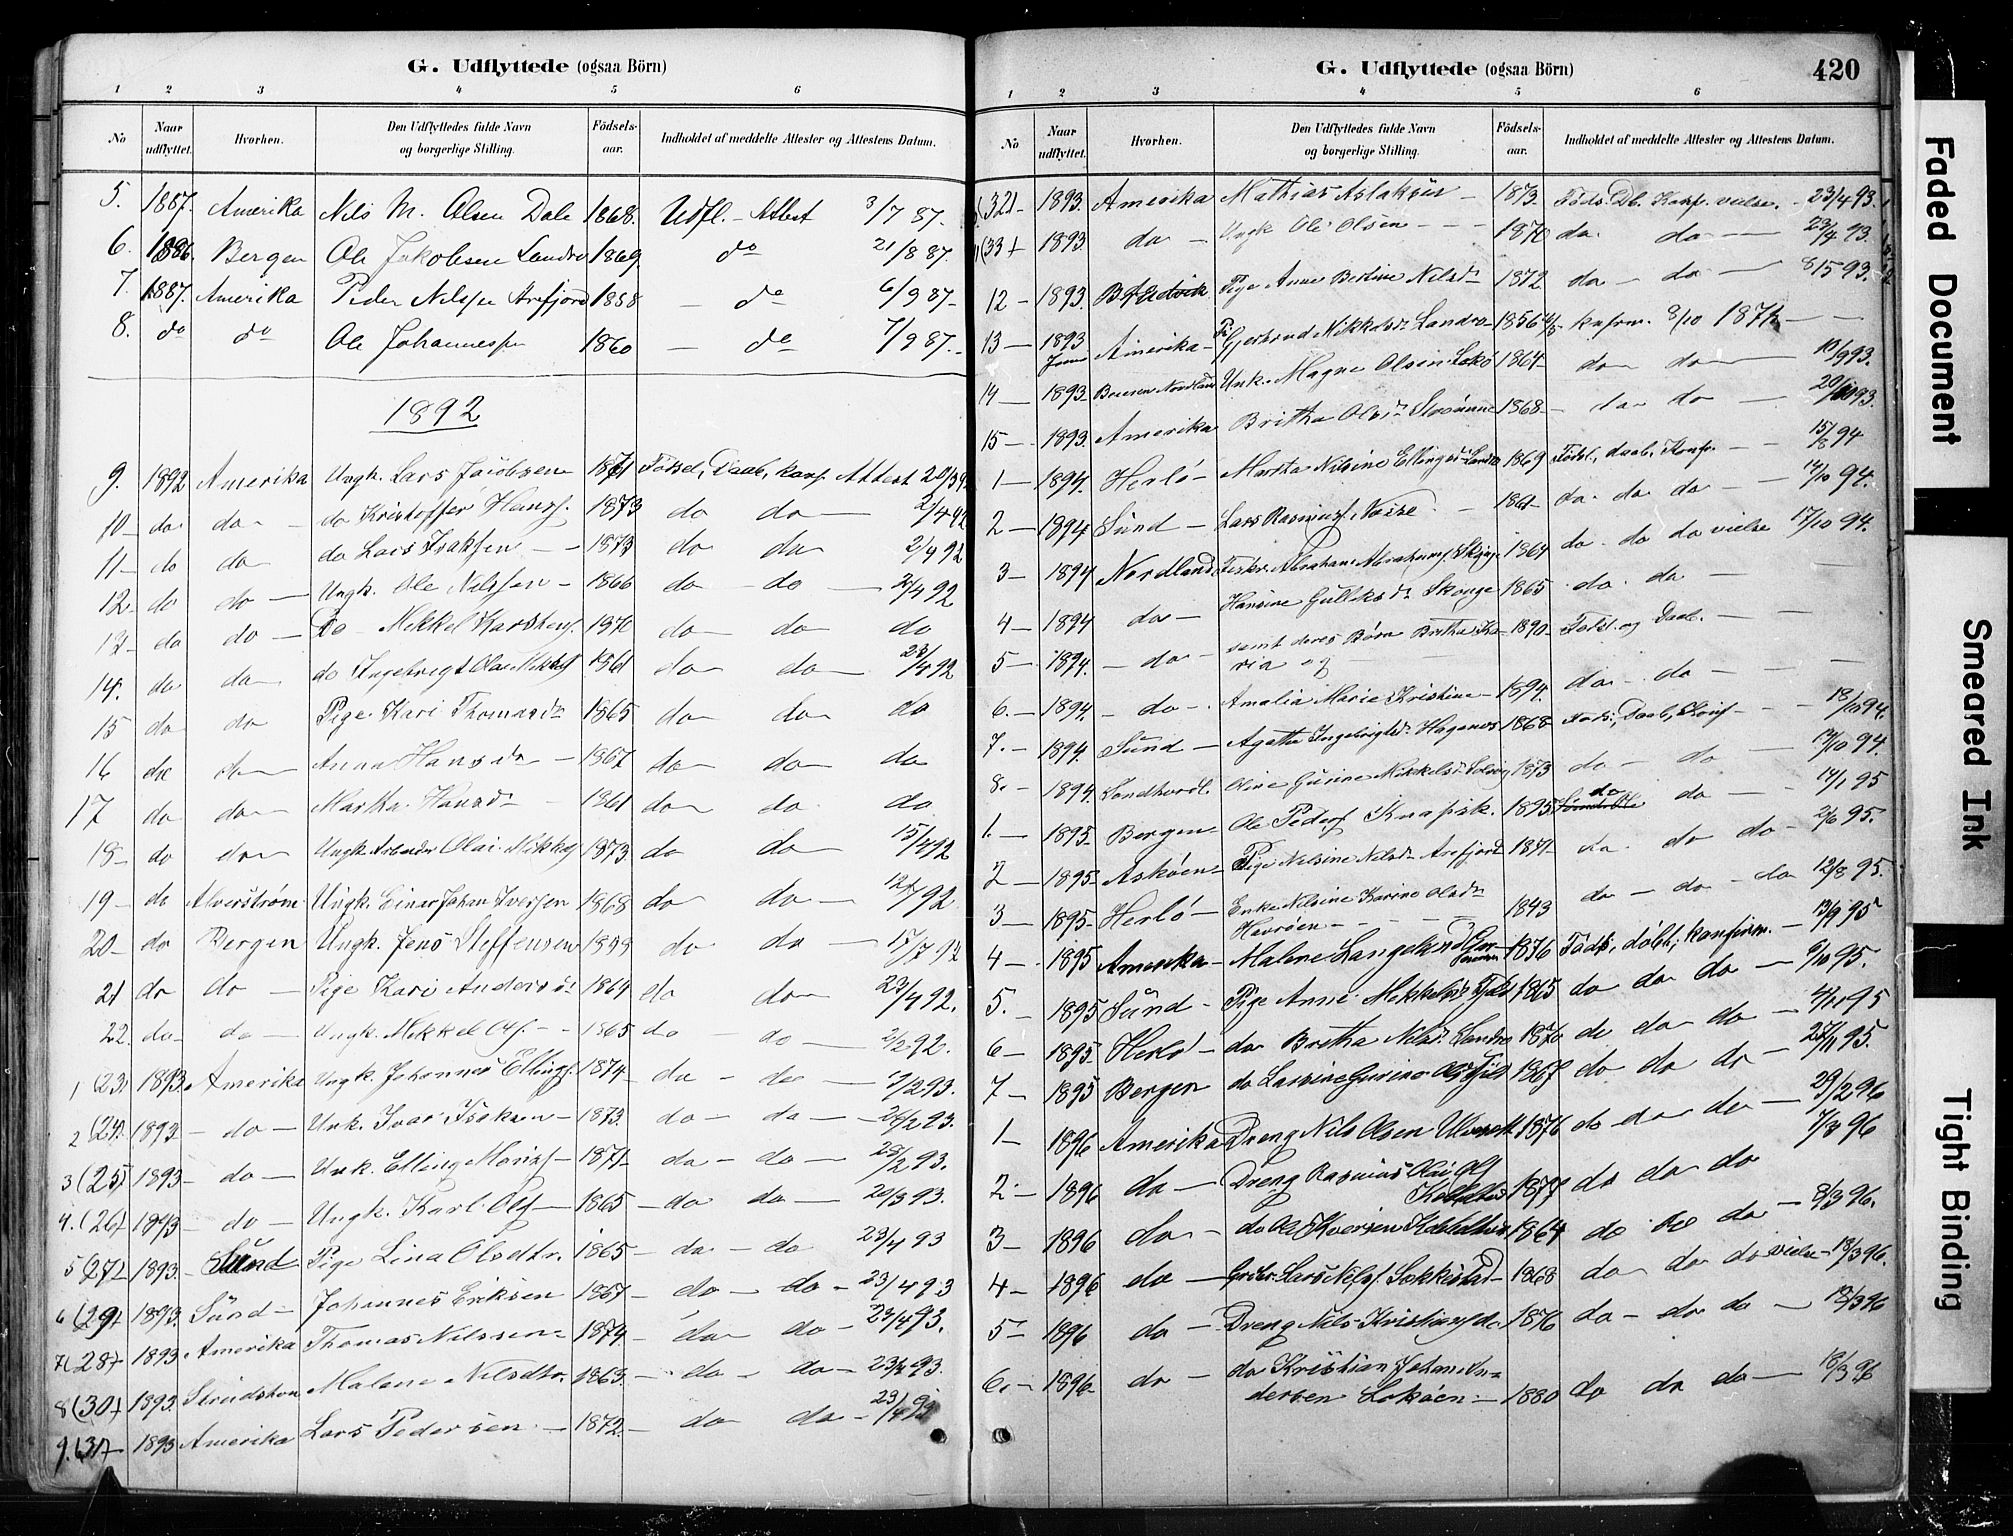 G. Udflyttede (ogsaa Börn)
1 2 3 4 5 6
No Naar udflyttet. Hvorhen. Den Udflyttedes fulde Navn og borgerlige Stilling. Födsels-aar. Indholdet af meddelte Attester og Attestens Datum.
5. 1887. Amerika Nils M. Olsen Dale 1868. Udfl. - Attest 3/7 87.
6. 1886. Bergen Ole Jakobsen Landro 1869. do 21/8 87.
7. 1887. Amerika Peder Nilsen Arefjord 1858 - do 6/9 87-
8. do do Ole Johannessen 1860 - do 7/9 87.
1892
9. 1892 Amerika Ungk. Lars Jacobsen 1871 Födsel, Daab, konf. Attest 20/3 92
10- do do - do Kristoffer Hans. 1873 do do - 2/4 92
11- do do do Lars Isaksen - - 1873 do do 2/4 92
12 do do - Ungk. Ole Nilssen - 1866 do - do - 2/4 92
13- do do - Do - Mikkel Karstens. 1870 do - do do
14. do do do Ingebrigt Olai 1861 do do 23/4 92
15 do do Pige Kari Thomasdr 1865 do do do
16 do do - Anna Hansdr - 1867 do do do
17 do do - Martha Hansdr - 1861 do do do
18- do do - Ungk. Olai 1873 do do 15/4 92
19- do Alverstrøm Ungk. Einar Johan Iversen 1868 do do
20- do Bergen Ungk. Jens Steffensen do do - 17/7 92
21 do do - Pige Kari Andersdr 1864 do do 23/4 92.
22. do- do - Ungk. Mikkel Ols. - - 1865 do - do - 2/2 92.
1 (23) 1893. Amerika Ungk. Johannes Ellings. 1874- do - do - 7/2 93.
2 (24). 1893 - do - Unk. Ivar Isaksen - 1873. do - do - 26/2 93.
3 (25) 1893 - do - Unk. Elling - 1871- do - do - 28/2 93.
4. (26) 1893 - do - Ungk. Karl Ols - 1865 - do do - 20/3 93.
5 (27) 1893. - Sund Pige Lina Olsdtr. 1865 - do - do 23/4 93
6 (29) 1893. Sünd - Johannes Eriksen 1867 - do - do - 23/4 93
7 (28) 1893 Amerika Thomas Nilssen - 1874. - do do - 23/4 93.
8 (30) 1893. Malene Nilsdtr. 1863. - do - do - 23/4 93.
9. (31) 1893 Amerika Lars Pedersen - 1872 - do do - 23/4 93
G. Udflyttede (ogsaa Börn) 420
1 2 3 4 5 6
No Naar udflyttet. Hvorhen. Den Udflyttedes fulde Navn og borgerlige Stilling. Födsels-aar. Indholdet af meddelte Attester og Attestens Datum.
(32) - 1893. Amerika Mathias Aslaksen - 1873. Föds. Db. Konf. vielse. - 23/4 93.
(33) 1893. do - Ungk Ole Olsen - - - 1870 do. do - 23/4 93.
12 - 1893. Pige Anne Bertine Nilsdr 1872 do - do - 8/5 93.
13 - 1893 Juni Amerika - Pi. Gjertrud Nikkolsdr Landro - 1856 konfrm. 8/10 1871 - -
14 - 1893. Nordland Unk. Magne Olsen Lokø 1864- do do - 10/9 93.
15 - 1893. Amerika Britha Olsdr 1868- do do - 20/10 93.
1 - 1894. Herlø - Martha Nilsine Ellingsdr Landro 1869 Födsl., daab, Konfr. - - 15/8 94
2 - 1894 Sünd - Lars Rasmus. - 1861- do. do do - - 14/10 94.
3 - 1894 Nordland Abraham Abrahams. Skoge 1864 do. do do vielse 17/10 94.
4 - 1894 do - Hansine Gulleksdr Skoge 1865 do. do - -
5 - 1894. - do - samt deres Børn Britha Karia og 1890- Födsl. og Daab. - -
6. - 1894. - do - Amalia Marie Kristine - 1894. do - do - -
7. - 1894. Sund - Agathe Ingebrigtsdr Hagenes 1868 Föds., Daab, Konf - - 18/10 94.
8. - 1894. Søndhordl. Oline Gurine Mikkelsdr Solvig 1873 do - do - 19/10 94.
1. - 1895 Bergen - Ole Peders. Knapsk. 1895 do do - - 14/1 95
2 - 1895 - Askøen - Pige Nilsine Nilsdr Arefjord 1871- do do do - 2/6 95.
3 - 1895- Herlø - Enke Nilsine Karine Olsdr 1843 do - do - do 12/8 95.
4 - 1895 Amerika - Malene Langelandr 1876 Födt, döbt, konfirm. - 13/9 95
5. - 1895 Sünd - Pige Anne Mikkelsdr Fjeld 1865 do do do - 6/10 95.
6 - 1895 Herlø - do Britha Nilsdr Landro 1870 do do do - 4/11 95
7 - 1895 Bergen do Lavine Gurine Olsdr 1867 do do do - 25/11 95.
1 - 1896 Amerika Dreng Nils Olsen Ulveset 1876 do do do - 29/2 96
2 - 1896 do - Dreng Rasmus Olai Ols 1877 do do do 7/3 96
3 - 1896 do - do Ole Iversen 1864 do do do - 8/3 96.
4 - 1896 do - Lars Nils. Sekkestad - 1868 do do do vielse - 13/3 96.
5 - 1896 do - Dreng Nils Kristians. do 1876 do - do do - 18/3 96
6. - 1896- do - do Kristian Johan Andersen Lokøen - 1880 do do do - 18/3 96
Faded Document
Smeared Ink
Tight Binding